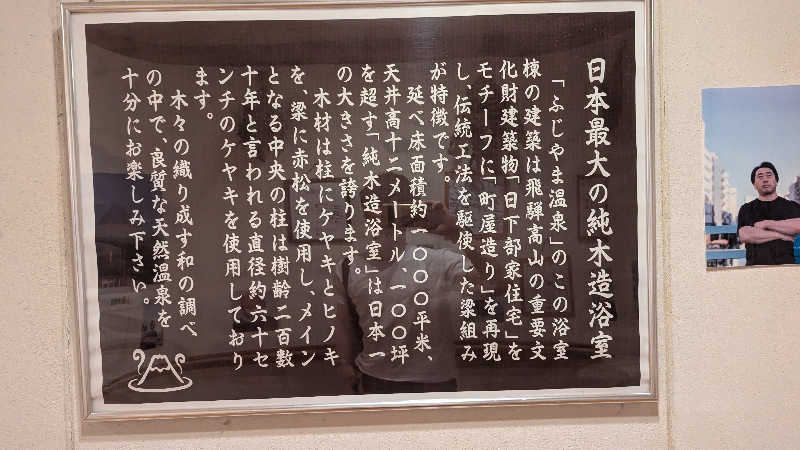 日本最大の純木造浴室
「ふじやま温泉」のこの浴室
棟の建築は飛騨高山の重要文
化財建築物「日下部家住宅」を
モチーフに「町屋造り」を再現
し、伝統工法を駆使した梁組み
が特徴です。
延べ床面積約一〇〇〇平米、
天井高十二メートル、一〇〇坪
を超す「純木造浴室」は日本一
の大きさを誇ります。
木材は柱にケヤキとヒノキ
を、梁に赤松を使用し、メイン
となる中央の柱は樹齢二百数
十年と言われる直径約六十セ
ンチのケヤキを使用しており
ます。
木々の織り成す和の調べ
の中で、良質な天然温泉を
十分にお楽しみ下さい。